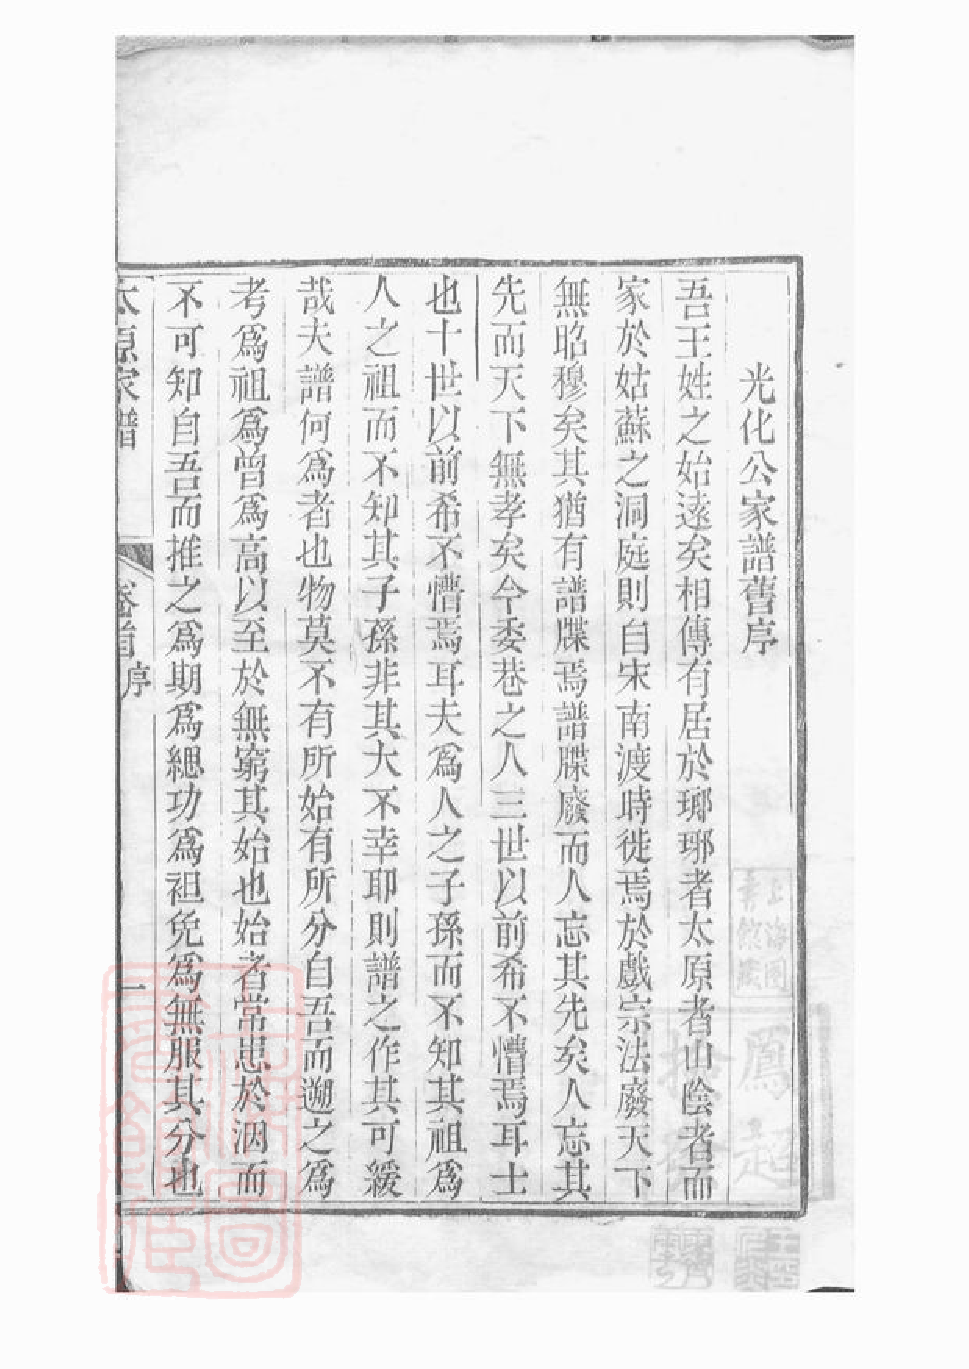 光化公家譜舊序
吾王姓之始遠矣相傳有居於瑯琊者太原者山陰者而
家於姑蘇之洞庭則自宋南渡時徙焉於戲宗法廢天下
無昭穆矣其猶有譜牒焉譜牒廢而人忘其先矣人忘其
先而天下無孝矣今委巷之人三世以前希不懵焉耳士
也十世以前希不懵焉耳夫為人之子孫而不知其祖為
人之祖而不知其子孫非其大不幸耶則譜之作其可緩
哉夫譜何為者也物莫不有所始有所分自吾而遡之為
考為祖為曾為高以至於無窮其始也始者常患於泯而
不可知自吾而推之為期為緦功為袒免為無服其分也
太原家譜 卷首 序 一
上海圖
書館藏
鳳超